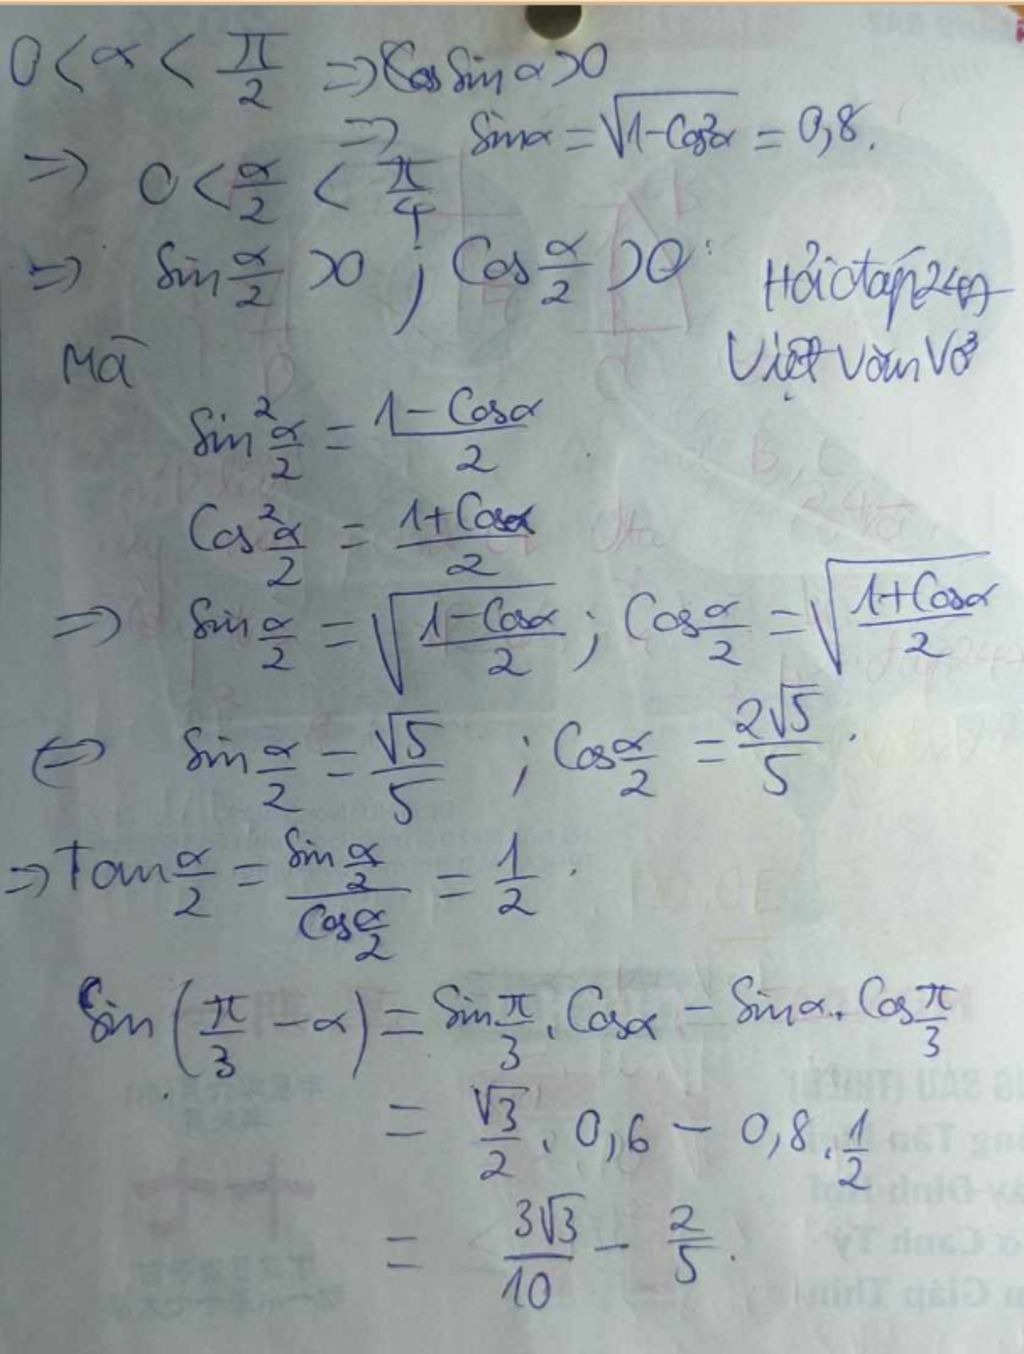 0 < α < π/2 ⇒ Sin α > 0
⇒ Sin α = √(1 - Cos²α) = 0,8.
⇒ 0 < α/2 < π/4
⇒ Sin α/2 > 0 ; Cos α/2 > 0
Hỏi đáp 247
Việt Văn Võ
Mà
Sin² α/2 = (1 - Cos α)/2
Cos² α/2 = (1 + Cos α)/2
⇒ Sin α/2 = √((1 - Cos α)/2) ; Cos α/2 = √((1 + Cos α)/2)
⇔ Sin α/2 = √5/5 ; Cos α/2 = 2√5/5.
⇒ Tan α/2 = (Sin α/2)/(Cos α/2) = 1/2.
Sin (π/3 - α) = Sin π/3 . Cos α - Sin α . Cos π/3
= √3/2 . 0,6 - 0,8 . 1/2
= 3√3/10 - 2/5.